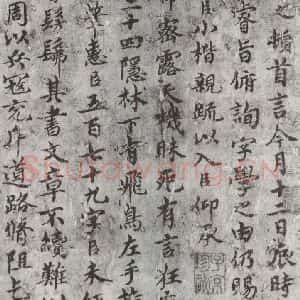 之牘首言今月十二日辰時
睿旨俯詢字學之由仍賜
臣小楷親疏以入臣仰承
密露天機昧死有言狂
二十四隱林下有飛鳥左手
筆憲臣五百七十九字臣未
髣髴其書文章不續難
周以兵寇充斥道路脩阻
Shufawang.CN